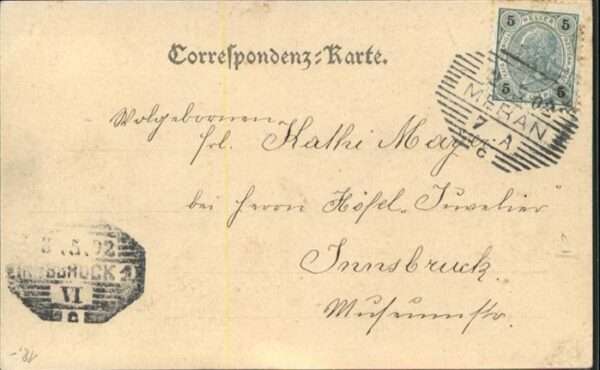 Correspondenz-Karte.
5 HELLER 5
5 5
MERAN
7 A
Wolgebornen
Frl. Kathi May
bei Herrn Höfel „Juwelier“
Innsbruck
Museumstr.
5.02
INNSBRUCK 1
VI
C
18.-